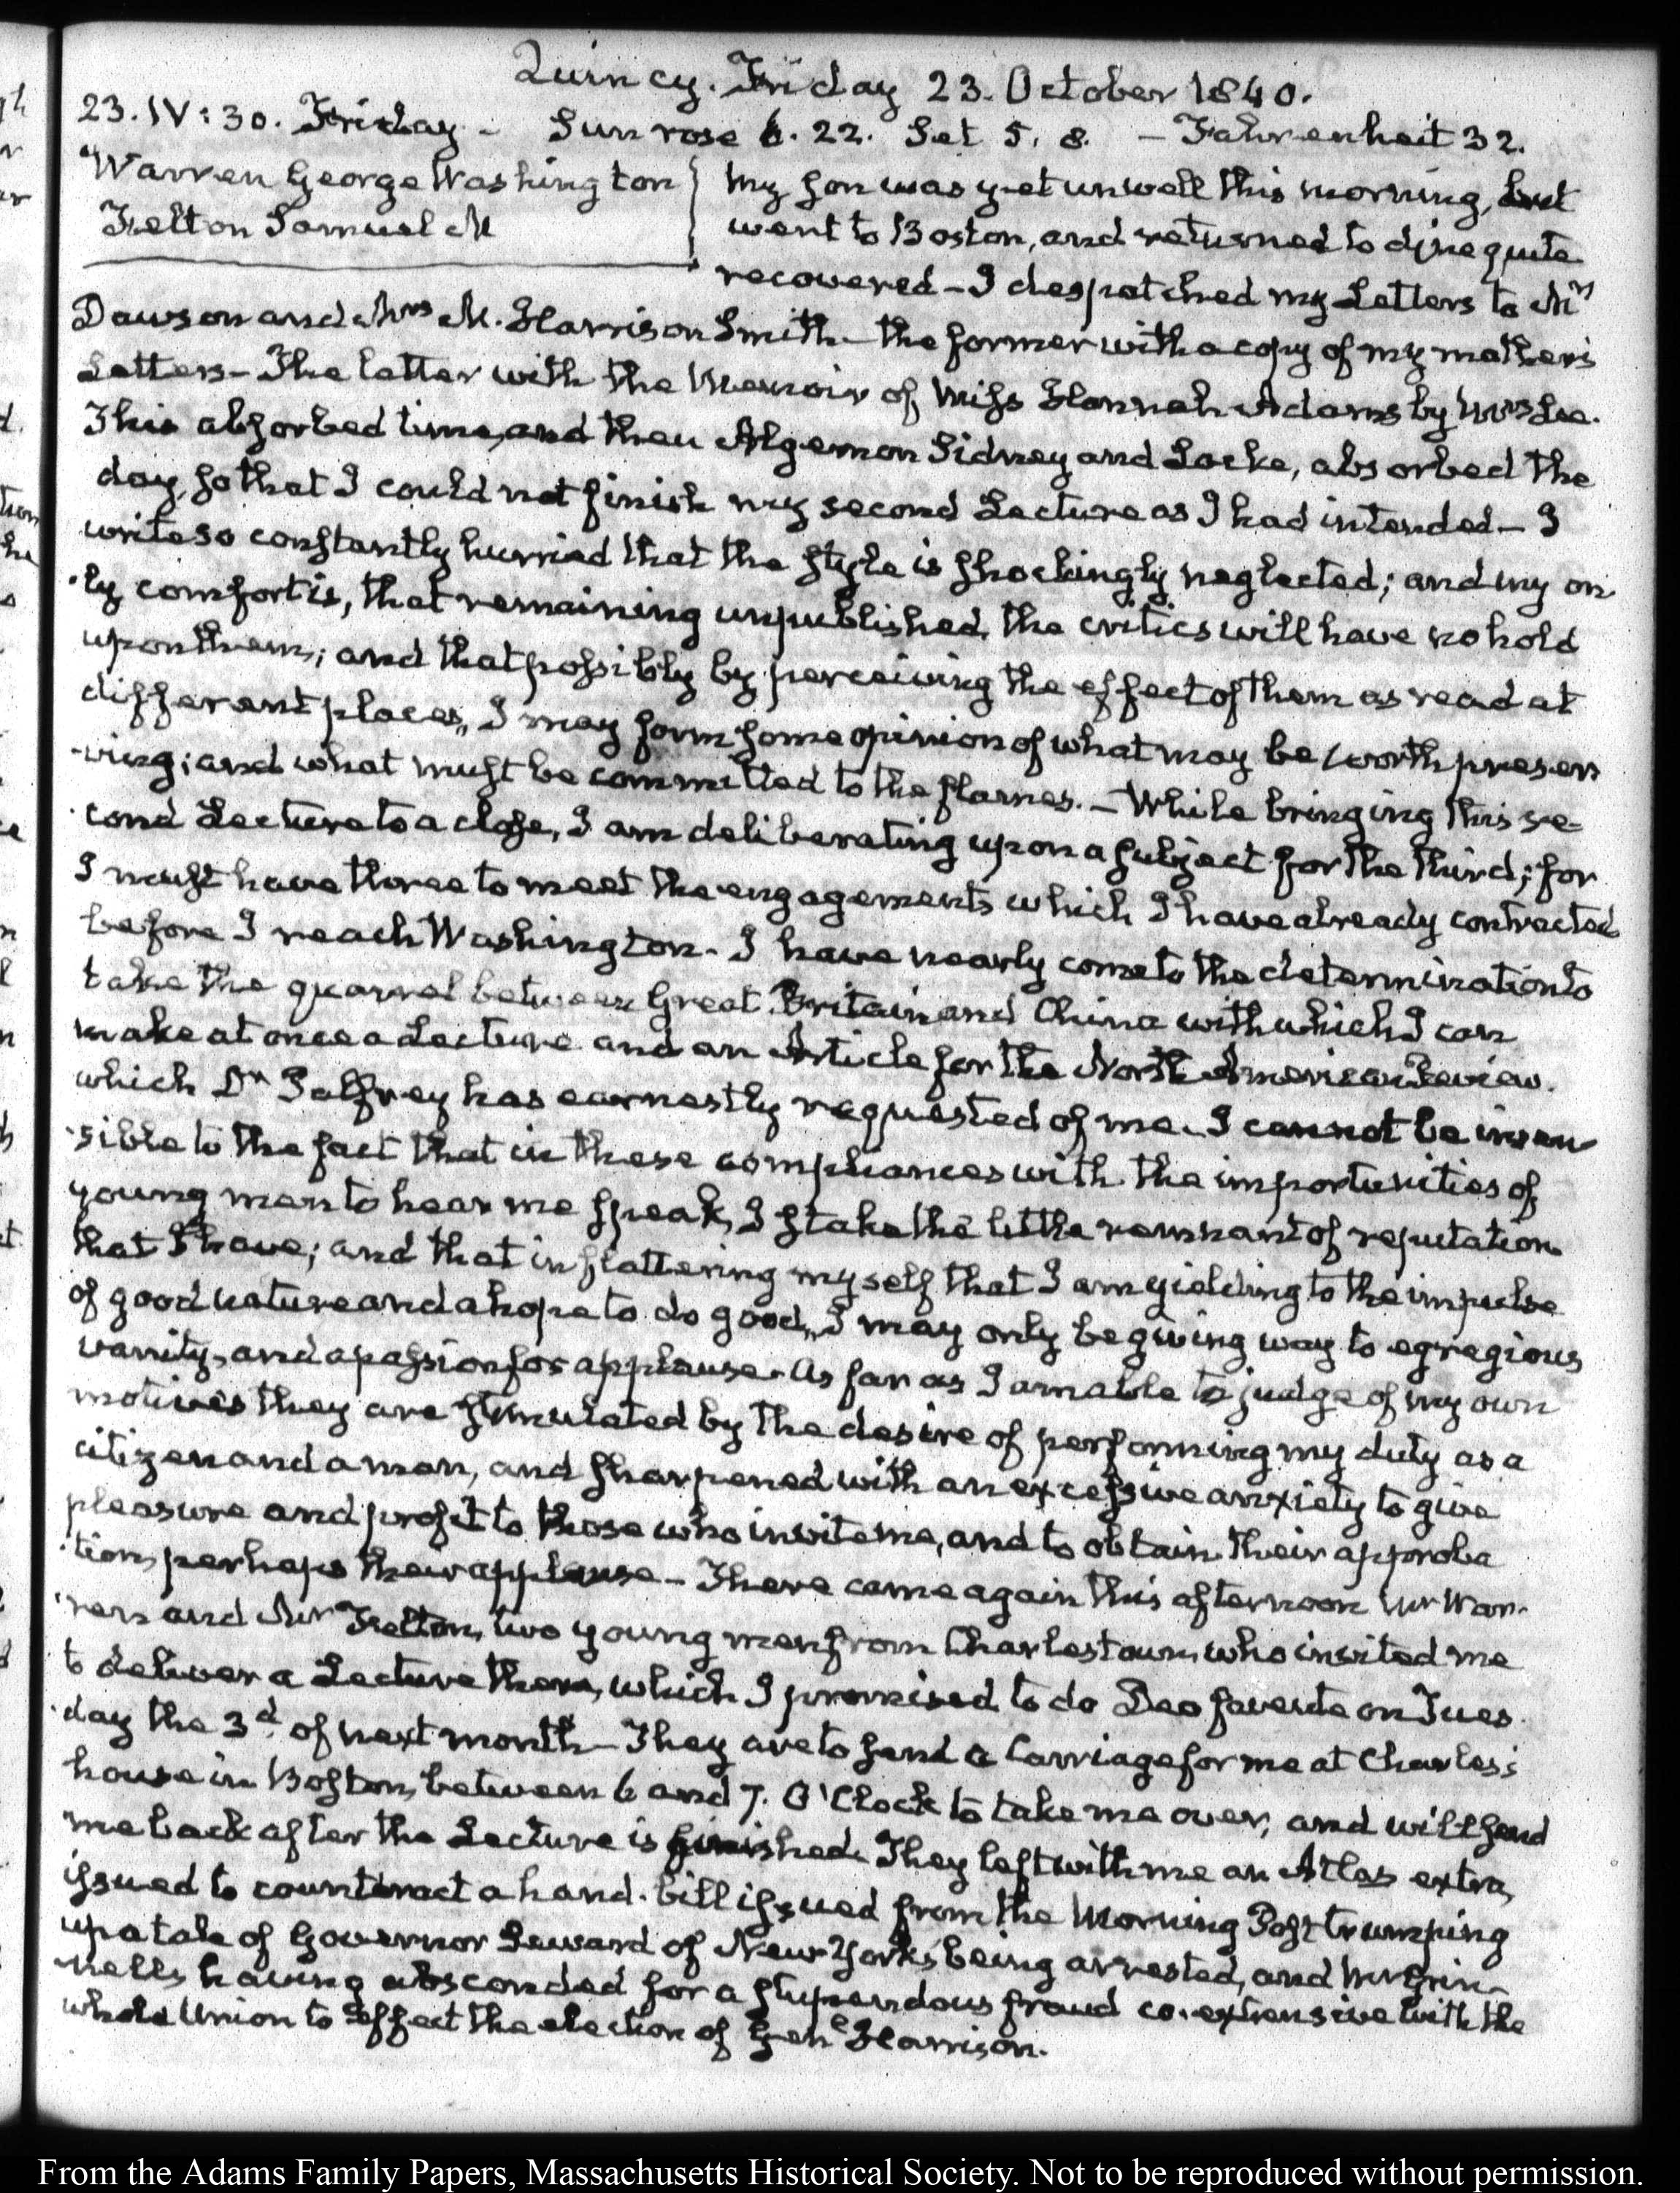 Quincy. Friday 23. October 1840.
23. IV: 30. Friday - Sun rose 6. 22. Set 5. 8. - Fahrenheit 32.
Warren George Washington
Felton Samuel M
My Son was yet unwell this morning, but
went to Boston, and returned to dine quite
recovered - I despatched my Letters to Mr
Dawson and Mrs M. Harrison Smith - the former with a copy of my mother's
Letters - The latter with the Memoir of Miss Hannah Adams by Mrs Lee.
This absorbed time, and then Algernon Sidney and Locke, absorbed the
day, so that I could not finish my second Lecture as I had intended - I
write so constantly hurried that the style is shockingly neglected; and my on
-ly comfort is, that remaining unpublished, the critics will have no hold
upon them; and that possibly by perceiving the effect of them as read at
different places, I may form some opinion of what may be worth preser
-ving; and what must be committed to the flames. - While bringing this se-
cond Lecture to a close, I am deliberating upon a subject for the third; for
I must have three to meet the engagements which I have already contracted
before I reach Washington - I have nearly come to the determination to
take the quarrel between Great Britain and China with which I can
make at once a Lecture and an Article for the North American Review.
which Dr Palfrey has earnestly requested of me. I cannot be insen
-sible to the fact that in these compliances with the importunities of
young men to hear me speak, I stake the little remnant of reputation
that I have; and that in flattering myself that I am yielding to the impulse
of good nature and a hope to do good, I may only be giving way to egregious
vanity, and a passion for applause. As far as I am able to judge of my own
motives they are stimulated by the desire of performing my duty as a
citizen and a man, and sharpened with an excessive anxiety to give
pleasure and profit to those who invite me, and to obtain their approba
-tion, perhaps their applause - There came again this afternoon Mr War-
-ren and Mr Felton, two young men from Charlestown, who invited me
to deliver a Lecture there, which I promised to do Deo favente on Tues
-day the 3d. of next month - They are to send a Carriage for me at Charles's
house in Boston, between 6 and 7. O'Clock to take me over, and will send
me back after the Lecture is finished. They left with me an Atlas extra,
issued to counteract a hand-bill issued from the Morning Post trumping
up a tale of Governor Seward of New-York's being arrested, and Mr Grin-
nell's having absconded for a stupendous fraud co-extensive with the
whole Union to effect the election of Genl Harrison.
From the Adams Family Papers, Massachusetts Historical Society. Not to be reproduced without permission.